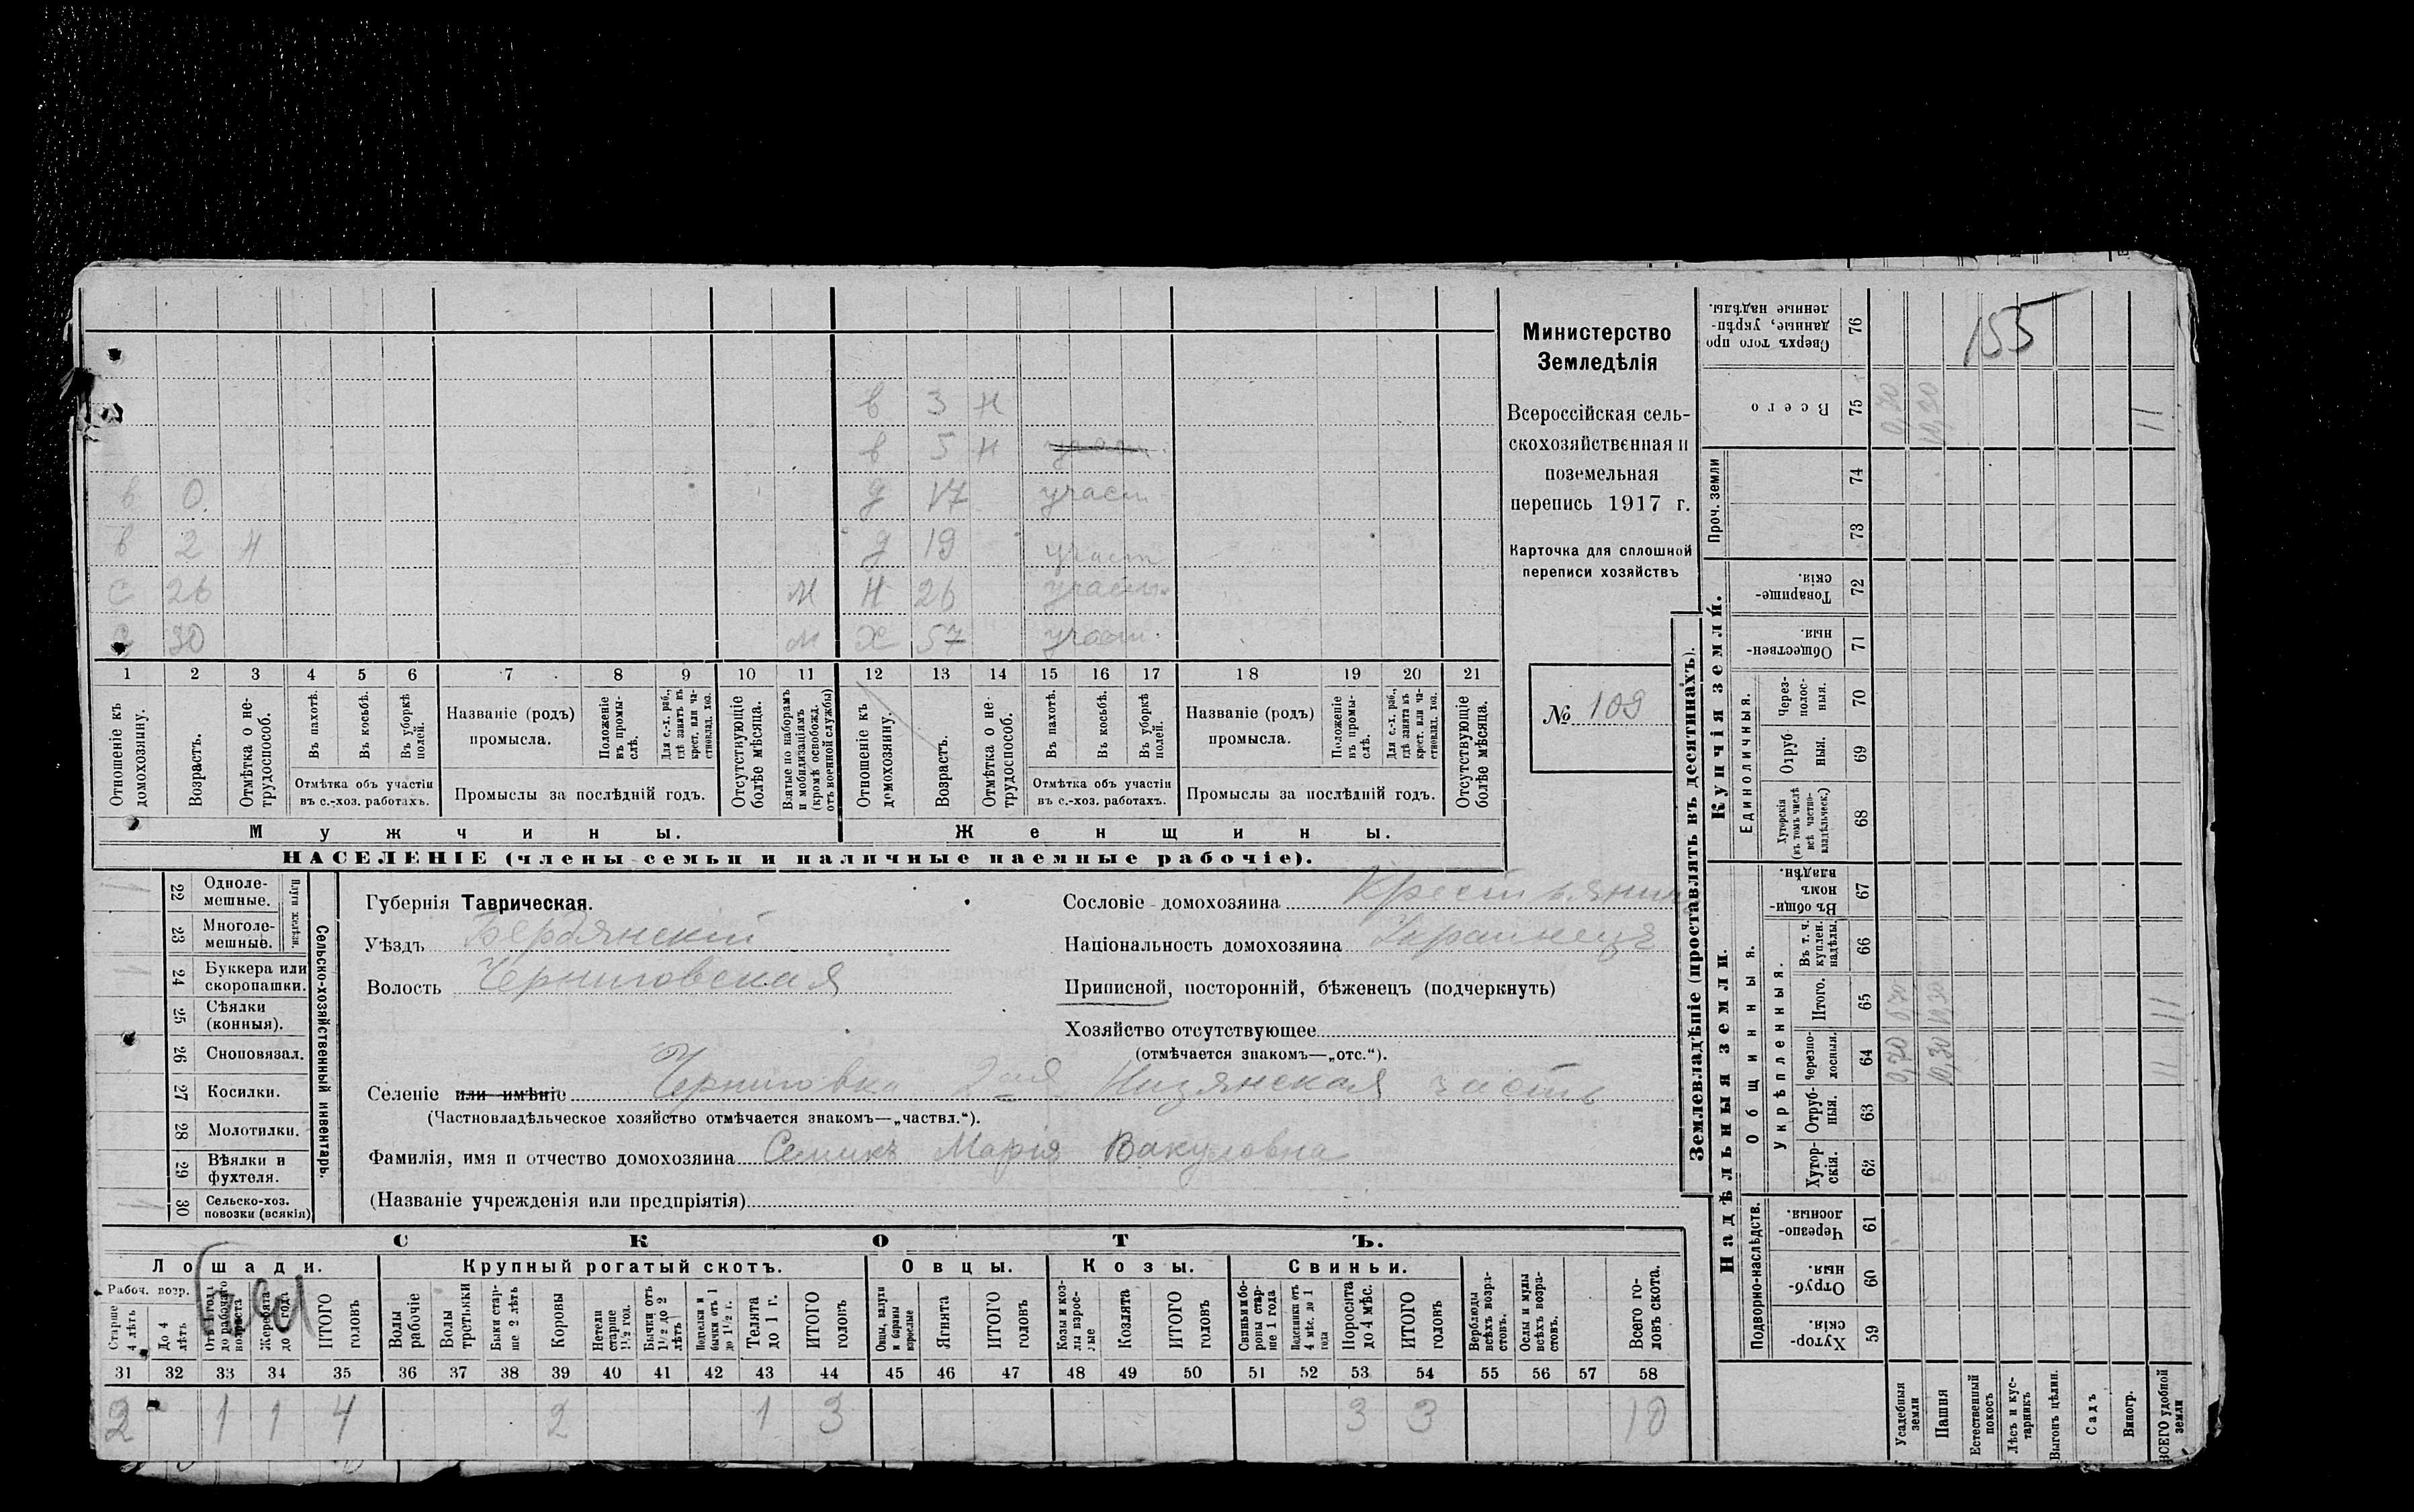 155
Министерство
Земледѣлія
Всероссійская сель-
скохозяйственная и
поземельная
перепись 1917 г.
Карточка для сплошной
переписи хозяйствъ
№ 109
в 3 н
в 5 н
в 0. д 17 участ
в 2 н д 19 участ
с 26 м н 26 участ.
с 30 м х 57 участ.
1 2 3 4 5 6 7 8 9 10 11 12 13 14 15 16 17 18 19 20 21
Отношеніе къ домохозяину.
Возрастъ.
Отмѣтка о не-трудоспособ.
Въ пахотѣ.
Въ косьбѣ.
Въ уборкѣ полей.
Отмѣтка объ участіи
въ с.-хоз. работахъ.
Названіе (родъ)
промысла.
Положеніе въ промы-слѣ.
Для с.-х. раб., гдѣ занятъ въ крест. или ча-стновлад. хоз.
Промыслы за послѣдній годъ.
Отсутствующіе болѣе мѣсяца.
Взятые по наборамъ и мобилизаціямъ (кромѣ освобожд. отъ военной службы)
Отношеніе къ домохозяину.
Возрастъ.
Отмѣтка о не-трудоспособ.
Въ пахотѣ.
Въ косьбѣ.
Въ уборкѣ полей.
Отмѣтка объ участіи
въ с.-хоз. работахъ.
Названіе (родъ)
промысла.
Положеніе въ промы-слѣ.
Для с.-х. раб., гдѣ занята въ крест. или ча-стновлад. хоз.
Промыслы за послѣдній годъ.
Отсутствующіе болѣе мѣсяца.
Мужчины. Женщины.
НАСЕЛЕНІЕ (члены семьи и наличные наемные рабочіе).
Сельско-хозяйственный инвентарь.
Плуги желѣзн.
1 22 Одноле-мешные.
23 Многоле-мешные.
1 24 Буккера или скоропашки.
25 Сѣялки (конныя).
26 Сноповязал.
27 Косилки.
28 Молотилки.
29 Вѣялки и фухтеля.
1 30 Сельско-хоз. повозки (всякія)
Губернія Таврическая.
Уѣздъ Бердянскій
Волость Черниговская
Сословіе домохозяина Крестьянин
Національность домохозяина Украинецъ
Приписной, посторонній, бѣженецъ (подчеркнуть)
Хозяйство отсутствующее
(отмѣчается знакомъ—„отс.“).
Селеніе или имѣніе Черниговка 2-ая Низянская часть
(Частновладѣльческое хозяйство отмѣчается знакомъ—„частвл.“).
Фамилія, имя и отчество домохозяина Семикъ Марія Вакуловна
(Названіе учрежденія или предпріятія)
СКОТЪ.
Лошади. Крупный рогатый скотъ. Овцы. Козы. Свиньи.
Рабоч. возр.
Старше 4 лѣтъ
До 4 лѣтъ
Отъ 1 года до рабочаго возраста
Жеребята до 1 года
ИТОГО головъ
Волы рабочіе
Волы третьяки
Быки стар-ше 2 лѣтъ
Коровы
Нетели старше 1½ год.
Бычки отъ 1½ до 2 лѣтъ
Подтелки и бычки отъ 1 до 1½ г.
Телята до 1 г.
ИТОГО головъ
Овцы, валухи и бараны взрослые
Ягнята
ИТОГО головъ
Козы и коз-лы взрос-лые
Козлята
ИТОГО головъ
Свиньи и бо-ровы стар-ше 1 года
Подсвинки отъ 4 мѣс. до 1 года
Поросята до 4 мѣс.
ИТОГО головъ
Верблюды всѣхъ возра-стовъ.
Ослы и мулы всѣхъ возра-стовъ.
Всего го-ловъ скота.
31 32 33 34 35 36 37 38 39 40 41 42 43 44 45 46 47 48 49 50 51 52 53 54 55 56 57 58
2 1 1 4 2 1 3 3 3 10
Землевладѣніе (проставлять въ десятинахъ).
Купчія земли.
Надѣльныя земли.
Сверхъ того про-данные, укрѣп-ленные надѣлы. 76
Всего 75 0,70 10,30 11
Проч. земли 74 73
Товарище-скія. 72
Обществен-ныя. 71
Единоличныя.
Через-полос-ныя. 70
Отруб-ныя. 69
Хуторскія (въ томъ числѣ всѣ частно-владѣльческ.) 68
Общинныя.
Въ общи-номъ владѣн. 67
Укрѣпленныя.
Въ т. ч. куплен. надѣлы. 66
Итого. 65 0,70 10,30 11
Черезпо-лосныя. 64 0,70 10,30 11
Отруб-ныя. 63
Хутор-скія. 62
Подворно-наслѣдств.
Черезпо-лосныя. 61
Отруб-ныя. 60
Хутор-скія. 59
Усадебныя земли
Пашня
Естественный покосъ
Лѣсъ и кус-тарникъ
Выгонъ цѣлин.
Садъ
Виногр.
ВСЕГО удобной земли